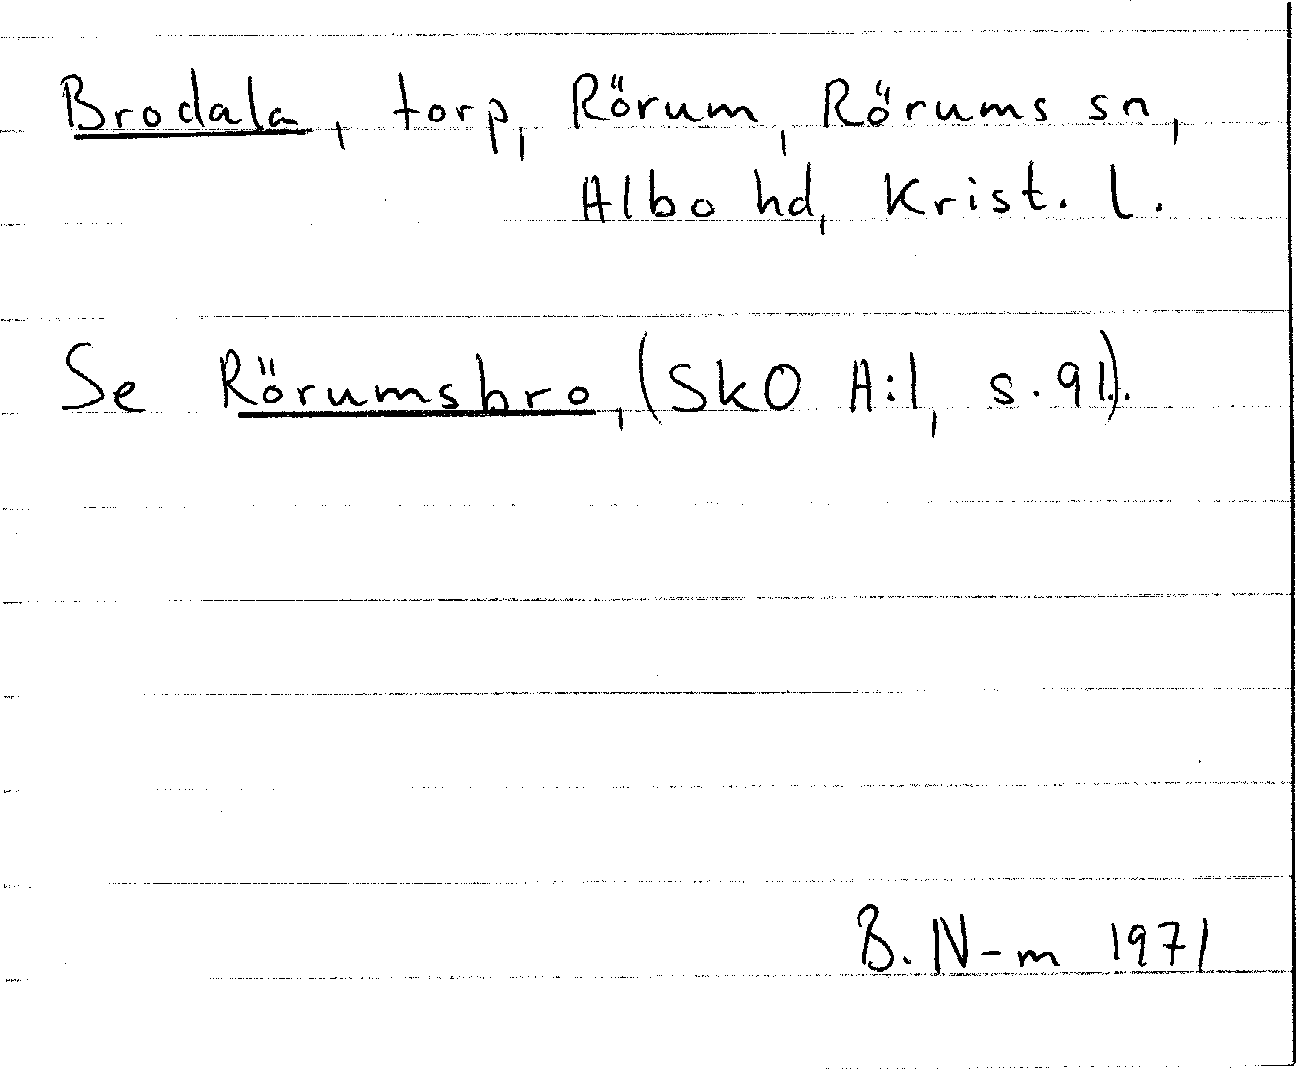 Brodala, torp, Rörum, Rörums sn,
Albo hd, Krist. l.
Se Rörumsbro, (SkO A:1, s. 91).
B. N-m 1971